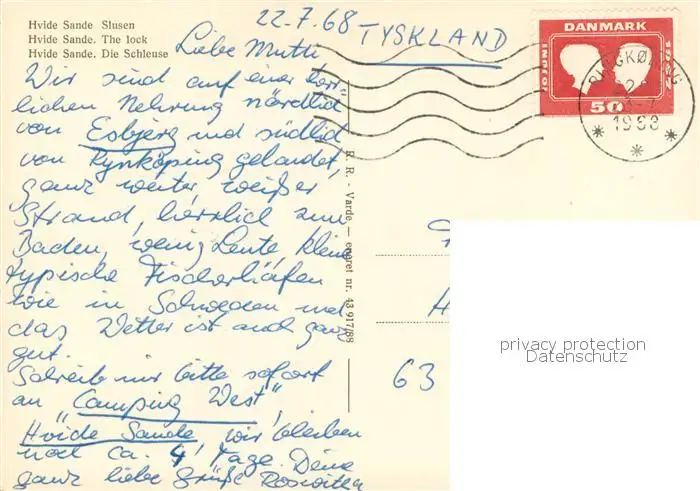 Hvide Sande Slusen
Hvide Sande. The lock
Hvide Sande. Die Schleuse
22.7.68
TYSKLAND
DANMARK
10 JUNI
1967
50
RINGKØBING
22
1968
Liebe Mutti,
Wir sind auf einer herr-
lichen Nehrung nördlich
von Esbjerg und südlich
von Rynköping gelandet,
ganz weiter, weißer
Strand, herrlich zum
Baden, wenig Leute, kleine
typische Fischerhäfen
wie in Schweden und
das Wetter ist auch ganz
gut.
Schreib mir bitte sofort
an "Camping West",
"Hvide Sande, wir bleiben
noch ca. 4 Tage. Deine
ganz liebe Grüße Roswitha
R. R. - Varde - eneret nr. 43 917/88
H
63
privacy protection
Datenschutz